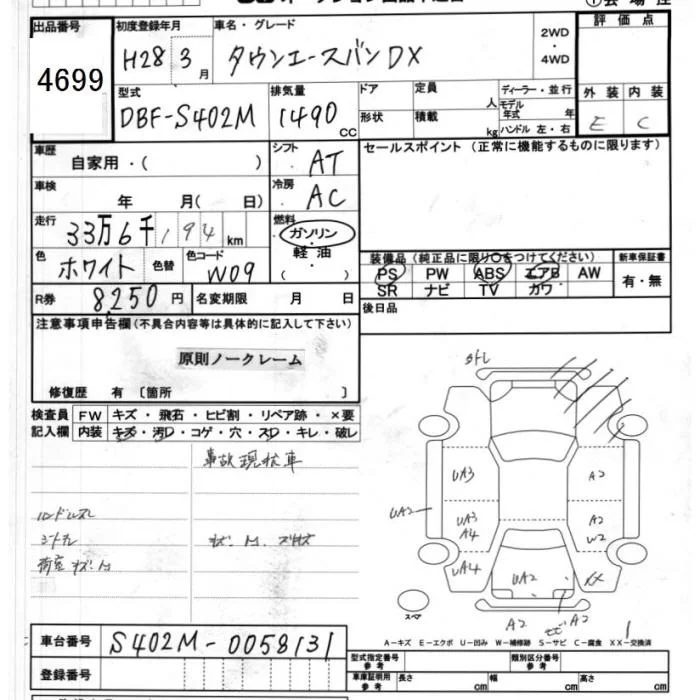 出品番号 初度登録年月 車名・グレード 2WD ・ 4WD 評価点
4699 H28 3月 タウンエースバン DX
型式 排気量 ドア 定員 人 ディーラー・並行 外装 内装
DBF-S402M 1490 CC 形状 積載 kg モデル年式 年 ハンドル 左・右 E C
車歴 自家用・( ) シフト AT セールスポイント (正常に機能するものに限ります)
車検 年 月( 日) 冷房 AC
走行 33万6千194 km 燃料 ガソリン・軽油・( )
色 ホワイト 色替 色コード W09 装備品 (純正品に限り○をつけてください) 新車保証書
PS PW ABS エアB AW 有・無
SR ナビ TV カワ
R券 8,250 円 名変期限 月 日 後日品
注意事項申告欄 (不具合内容等は具体的に記入して下さい)
原則ノークレーム
修復歴 有 〔箇所 〕
検査員記入欄 FW キズ・飛石・ヒビ割・リペア跡・×要
内装 キズ・汚レ・コゲ・穴・スレ・キレ・破レ
事故現状車
ハンドルスレ
シートスレ
荷室 キズ・凹
外レ
UA3 A2
UA2 UA3 A4 A2 W2
UA4 UA2 XX
スペア A2 A2
A-キズ E-エクボ U-凹み W-補修跡 S-サビ C-腐食 XX-交換済
車台番号 S402M-0058131
登録番号
型式指定番号 参考 類別区分番号 参考
車庫証明用 参考 長さ cm 幅 cm 高さ cm